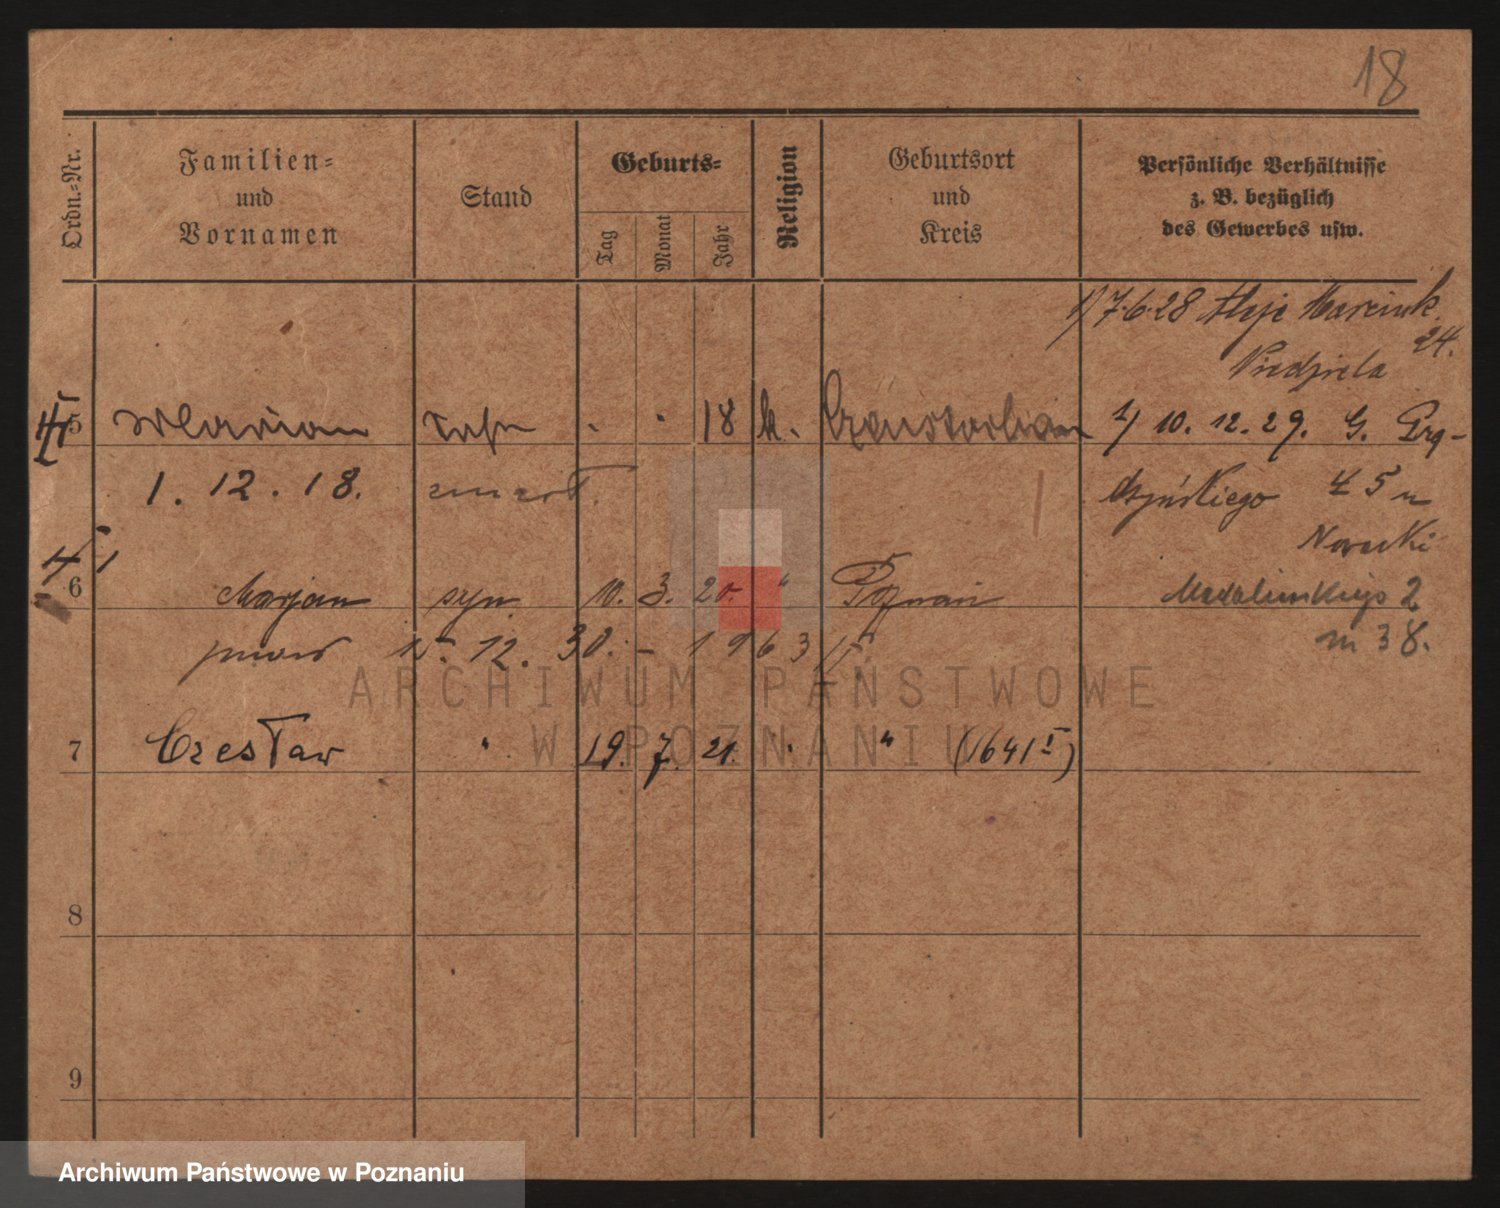 18
Ordn.=Nr.
Familien=
und
Vornamen
Stand
Geburts=
Tag
Monat
Jahr
Religion
Geburtsort
und
Kreis
Persönliche Verhältnisse
z. B. bezüglich
des Gewerbes usw.
1) 7.6.28 Aleje Marcink.
24.
Niedziela
5 Marian 18 k.
2) 10. 12. 29. G. Prą-
1. 12. 18. zmarł.
dzyńskiego 45 u
Nowacki
6 Marjan syn 10. 3. 20. " Poznań
Madalińskiego 2
m 38.
15. 12. 30. - 1963
7 Czesław " 19. 7. 21. " " (1641 I)
8
9
ARCHIWUM PAŃSTWOWE
W POZNANIU
Archiwum Państwowe w Poznaniu